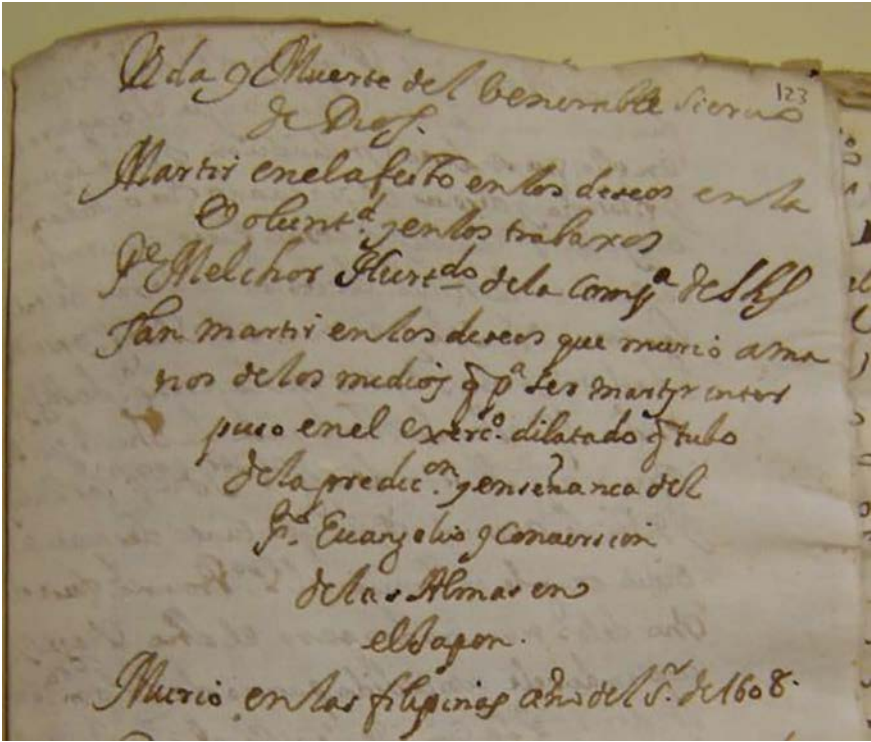 Vida y Muerte del benerable Sieruo
123
de Dios.
Martir enel afecto en los deseos en la
Volunt.d y en los trabaxos
Pe Melchor Hurt.do dela Comp.a de Jhs
Tan martir en los deseos que murio ama
nos de los medios q pa ser martyr inter
puso enel exerc.o dilatado q tubo
dela predic.on y enseñanca del
Sto. Euangelio y Conuersion
de las Almas en
el Japon.
Murio en las filipinas año del Sr. de 1608.